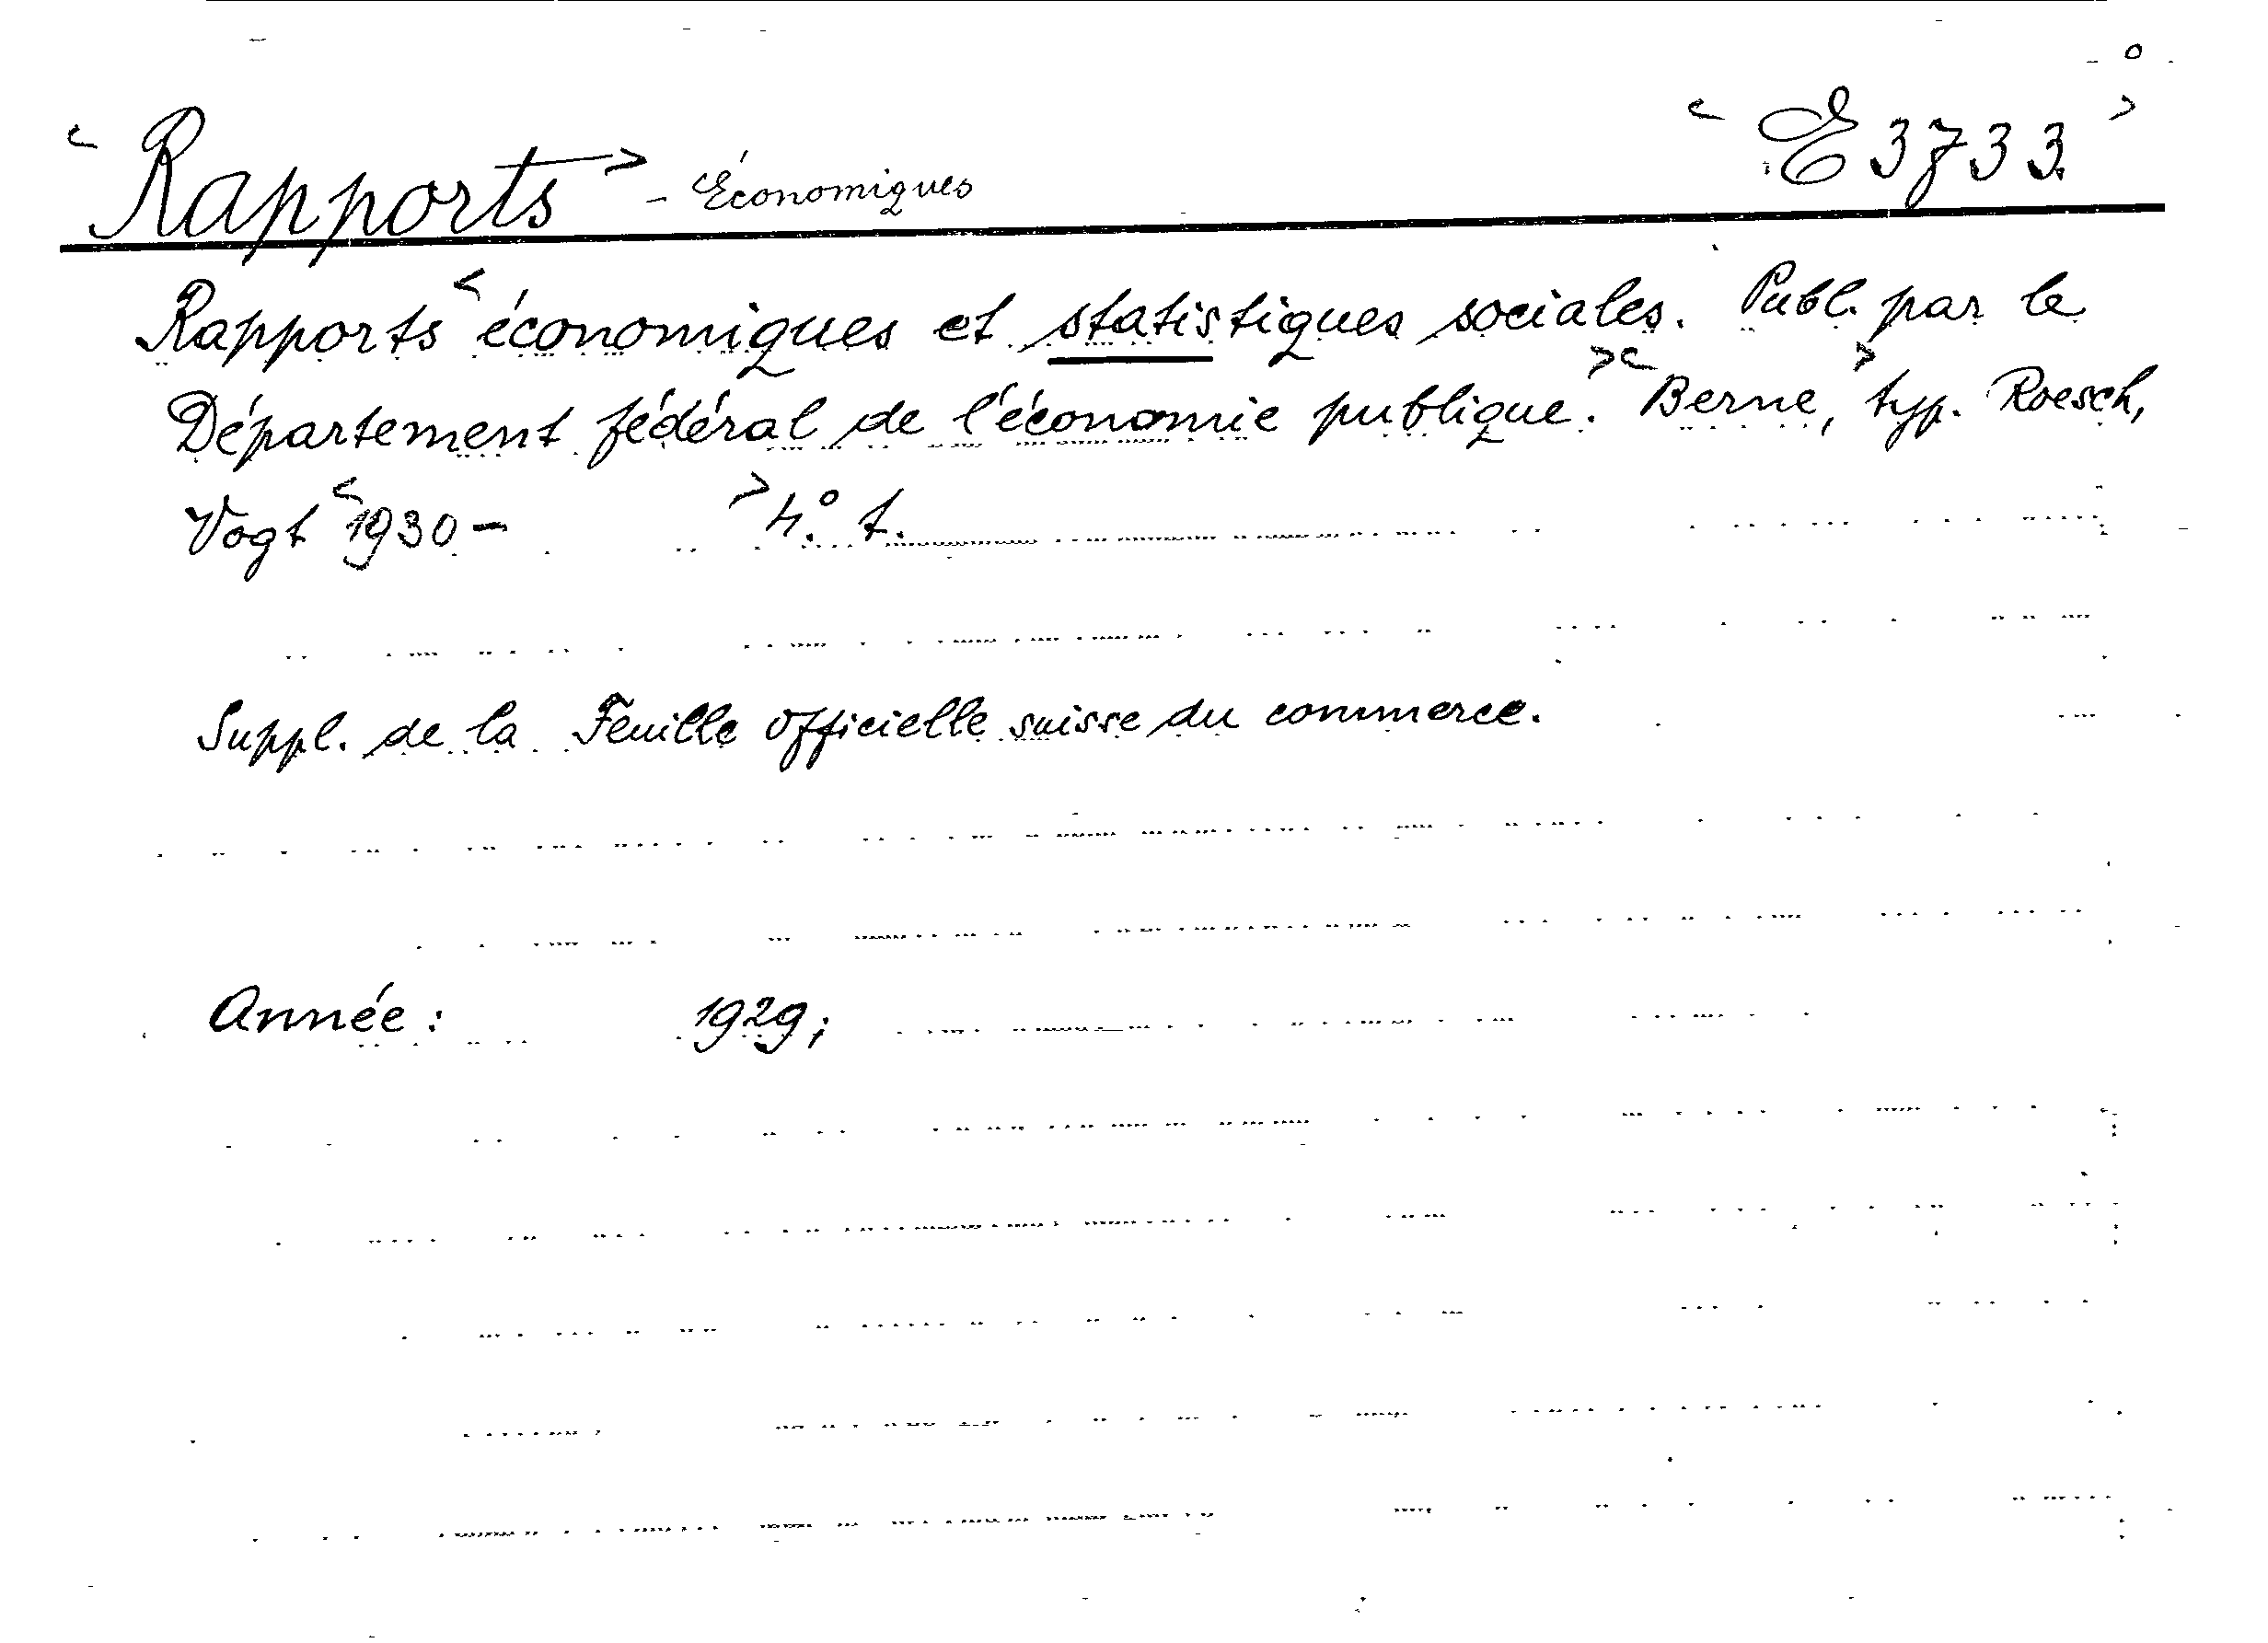 Rapports - Économiques E 3733
Rapports économiques et statistiques sociales. Publ. par le
Département fédéral de l'économie publique. Berne, typ. Roesch,
Vogt 1930 - 4.° t.
Suppl. de la Feuille officielle suisse du commerce.
Année: 1929;